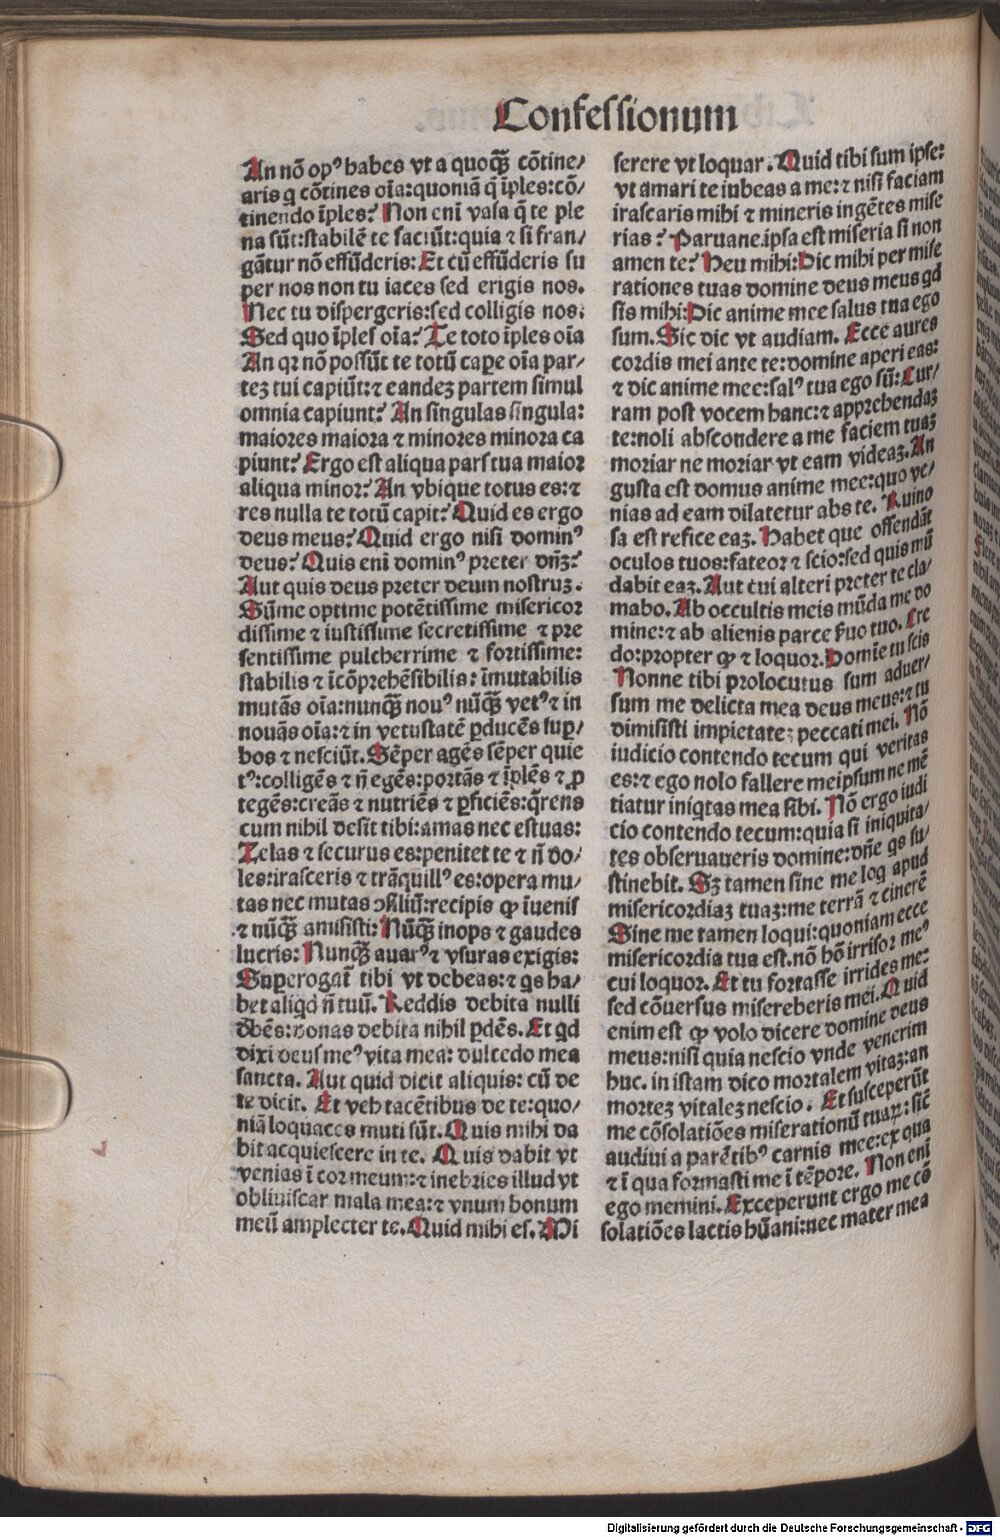 Confessionum
An nō opꝰ habes vt a quoq̄ꝫ cōtine/
aris q cōtines oīa:quoniā q̄ īples:cō/
tinendo īples? Non enī vasa q̄ te ple
na sūt:stabilē te faciūt:quia ⁊ si fran/
gātur nō effūderis: Et cū effūderis su
per nos non tu iaces sed erigis nos.
Nec tu dispergeris:sed colligis nos:
Sed quo īples oīa? Te toto īples oīa
An qꝛ nō possūt te totū capere oīa par/
teʒ tui capiūt:⁊ eandeʒ partem simul
omnia capiunt? An singulas singula:
maiores maiora ⁊ minores minora ca
piunt? Ergo est aliqua pars tua maior
aliqua minor? An vbique totus es:⁊
res nulla te totū capit? Quid es ergo
deus meus? Quid ergo nisi dominꝰ
deus? Quis enī dominꝰ preter dn̄ʒ?
Aut quis deus preter deum nostruʒ.
Sūme optime potētissime misericor
dissime ⁊ iustissime secretissime ⁊ pre
sentissime pulcherrime ⁊ fortissime:
stabilis ⁊ īcōprehēsibilis: īmutabilis
mutās oīa:nunq̄ꝫ nouꝰ nūq̄ꝫ vetꝰ ⁊ in
nouās oīa:⁊ in vetustatē ꝑducēs suꝑ/
bos ⁊ nesciūt. Sēper agēs sēper quie
tꝰ:colligēs ⁊ n̄ egēs:portās ⁊ īplēs ⁊ ꝓ
tegēs:creās ⁊ nutriēs ⁊ ꝑficiēs:q̄rens
cum nihil desit tibi:amas nec estuas:
Zelas ⁊ securus es:penitet te ⁊ n̄ do/
les:irasceris ⁊ trāquillꝰ es:opera mu/
tas nec mutas ꝯsiliū:recipis ꝙ īuenis
⁊ nūq̄ꝫ amisisti: Nūq̄ꝫ inops ⁊ gaudes
lucris: Nunq̄ꝫ auarꝰ ⁊ vsuras exigis:
Superogat̄ tibi vt debeas:⁊ qs ha/
bet aliqd n̄ tuū. Reddis debita nulli
dēbēs:donas debita nihil ꝑdēs. Et qd
dixi deus meꝰ vita mea: dulcedo mea
sancta. Aut quid dicit aliquis: cū de
te dicit. Et veh tacētibus de te:quo/
niā loquaces muti sūt. Quis mihi da
bit acquiescere in te. Quis dabit vt
venias ī cor meum:⁊ inebries illud vt
obliuiscar mala mea:⁊ vnum bonum
meū amplecter te. Quid mihi es. Mi
serere vt loquar. Quid tibi sum ipse:
vt amari te iubeas a me:⁊ nisi faciam
irascaris mihi ⁊ mineris ingētes mise
rias? Paruane ipsa est miseria si non
amen te? Heu mihi: Dic mihi per mise
rationes tuas domine deus meus qd
sis mihi: Dic anime mee salus tua ego
sum. Sic dic vt audiam. Ecce aures
cordis mei ante te:domine aperi eas:
⁊ dic anime mee:salꝰ tua ego sū: Cur/
ram post vocem hanc:⁊ apprehendaʒ
te:noli abscondere a me faciem tuaʒ
moriar ne moriar vt eam videaʒ. An
gusta est domus anime mee:quo ve/
nias ad eam dilatetur abs te. Ruino
sa est refice eaʒ. Habet que offendāt
oculos tuos:fateor ⁊ scio:sed quis mū
dabit eaʒ. Aut cui alteri preter te cla/
mabo. Ab occultis meis mūda me do
mine:⁊ ab alienis parce s̄uo tuo. Cre
do:propter ꝙ ⁊ loquor. Domīe tu scis
Nonne tibi prolocutus sum aduer/
sum me delicta mea deus meus:⁊ tu
dimisisti impietateʒ peccati mei. Nō
iudicio contendo tecum qui veritas
es:⁊ ego nolo fallere meipsum ne mē
tiatur iniqtas mea sibi. Nō ergo iudi
cio contendo tecum:quia si iniquita/
tes obseruaueris domine:dn̄e qs su/
stinebit. Sʒ tamen sine me loq apud
misericordiaʒ tuaʒ:me terrā ⁊ cinerē
Sine me tamen loqui:quoniam ecce
misericordia tua est.nō hō irrisor meꝰ
cui loquor. Et tu fortasse irrides me:
sed cōuersus misereberis mei. Quid
enim est ꝙ volo dicere domine deus
meus:nisi quia nescio vnde venerim
huc. in istam dico mortalem vitaʒ:an
morteʒ vitaleʒ nescio. Et susceperūt
me cōsolatiōes miserationū tuaꝝ: sic̄
audiui a parētibꝰ carnis mee:ex qua
⁊ ī qua formasti me ī tēpore. Non enī
ego memini. Exceperunt ergo me cō
solatiōes lactis hūani:nec mater mea
Digitalisierung gefördert durch die Deutsche Forschungsgemeinschaft - DFG